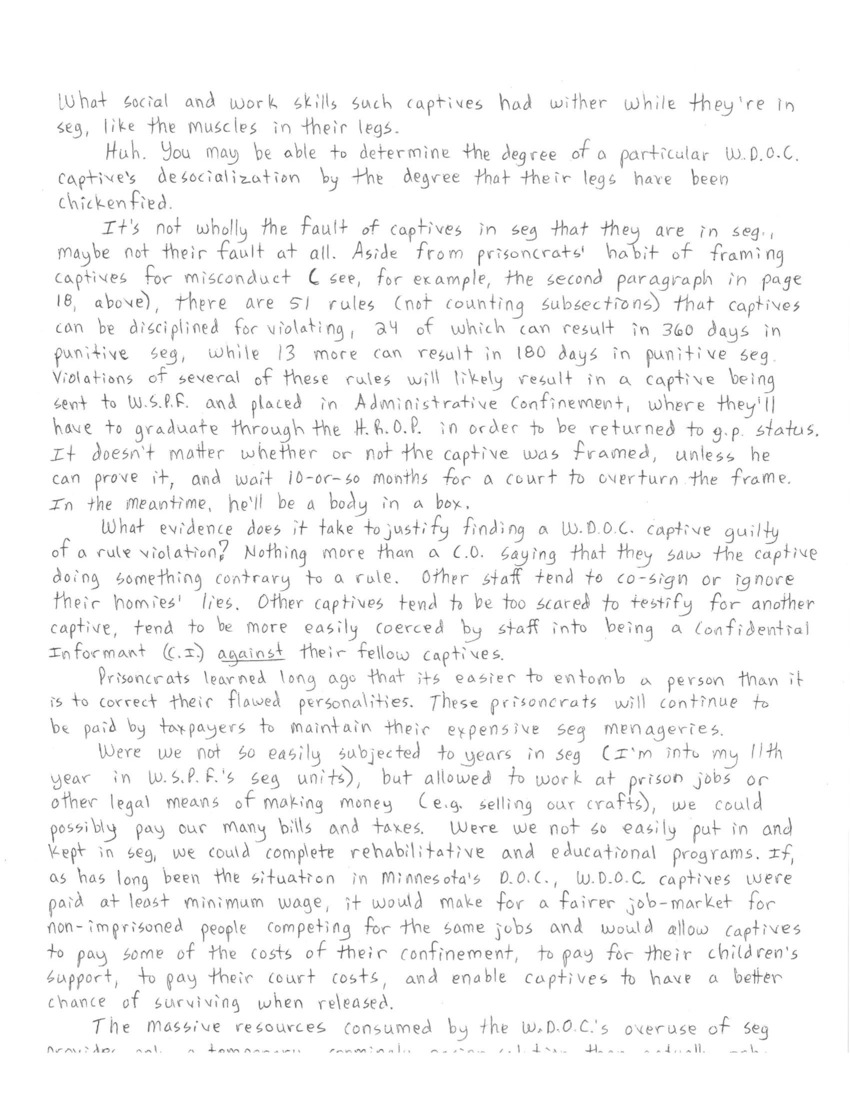 What social and work skills such captives had wither while they're in
seg, like the muscles in their legs.
Huh. You may be able to determine the degree of a particular W.D.O.C.
captive's desocialization by the degree that their legs have been
chickenfied.
It's not wholly the fault of captives in seg that they are in seg.,
maybe not their fault at all. Aside from prisoncrats' habit of framing
captives for misconduct ( see, for example, the second paragraph in page
18, above), there are 51 rules (not counting subsections) that captives
can be disciplined for violating, 24 of which can result in 360 days in
punitive seg, while 13 more can result in 180 days in punitive seg.
Violations of several of these rules will likely result in a captive being
sent to W.S.P.F. and placed in Administrative Confinement, where they'll
have to graduate through the H.R.O.P. in order to be returned to g.p. status.
It doesn't matter whether or not the captive was framed, unless he
can prove it, and wait 10-or-so months for a court to overturn the frame.
In the meantime, he'll be a body in a box.
What evidence does it take to justify finding a W.D.O.C. captive guilty
of a rule violation? Nothing more than a C.O. saying that they saw the captive
doing something contrary to a rule. Other staff tend to co-sign or ignore
their homies' lies. Other captives tend to be too scared to testify for another
captive, tend to be more easily coerced by staff into being a Confidential
Informant (C.I.) against their fellow captives.
Prisoncrats learned long ago that its easier to entomb a person than it
is to correct their flawed personalities. These prisoncrats will continue to
be paid by taxpayers to maintain their expensive seg menageries.
Were we not so easily subjected to years in seg (I'm into my 11th
year in W.S.P.F.'s seg units), but allowed to work at prison jobs or
other legal means of making money (e.g. selling our crafts), we could
possibly pay our many bills and taxes. Were we not so easily put in and
kept in seg, we could complete rehabilitative and educational programs. If,
as has long been the situation in Minnesota's D.O.C., W.D.O.C. captives were
paid at least minimum wage, it would make for a fairer job-market for
non-imprisoned people competing for the same jobs and would allow captives
to pay some of the costs of their confinement, to pay for their children's
support, to pay their court costs, and enable captives to have a better
chance of surviving when released.
The massive resources consumed by the W.D.O.C.'s overuse of seg